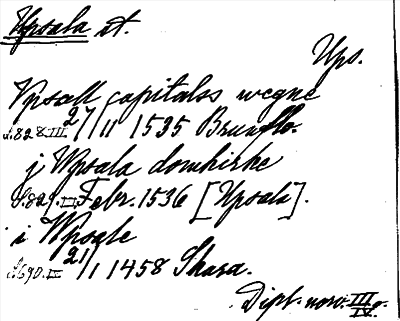 Upsala st.
Ups.
Vpsall capitalss wegne
s.828.III 27/11 1535 Brunflo.
j Wpsala domkirke
s.829.III Febr. 1536 [Upsala].
i Wpsale
s.690.III 21/1 1458 Skara.
Dipl. norv. III o.
IV